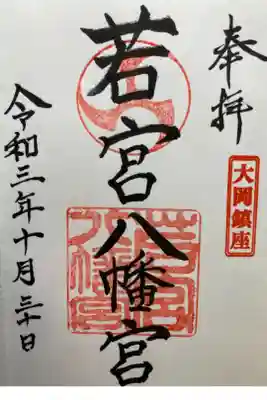 奉拝
大岡鎮座
若宮八幡宮
令和三年十月三十日